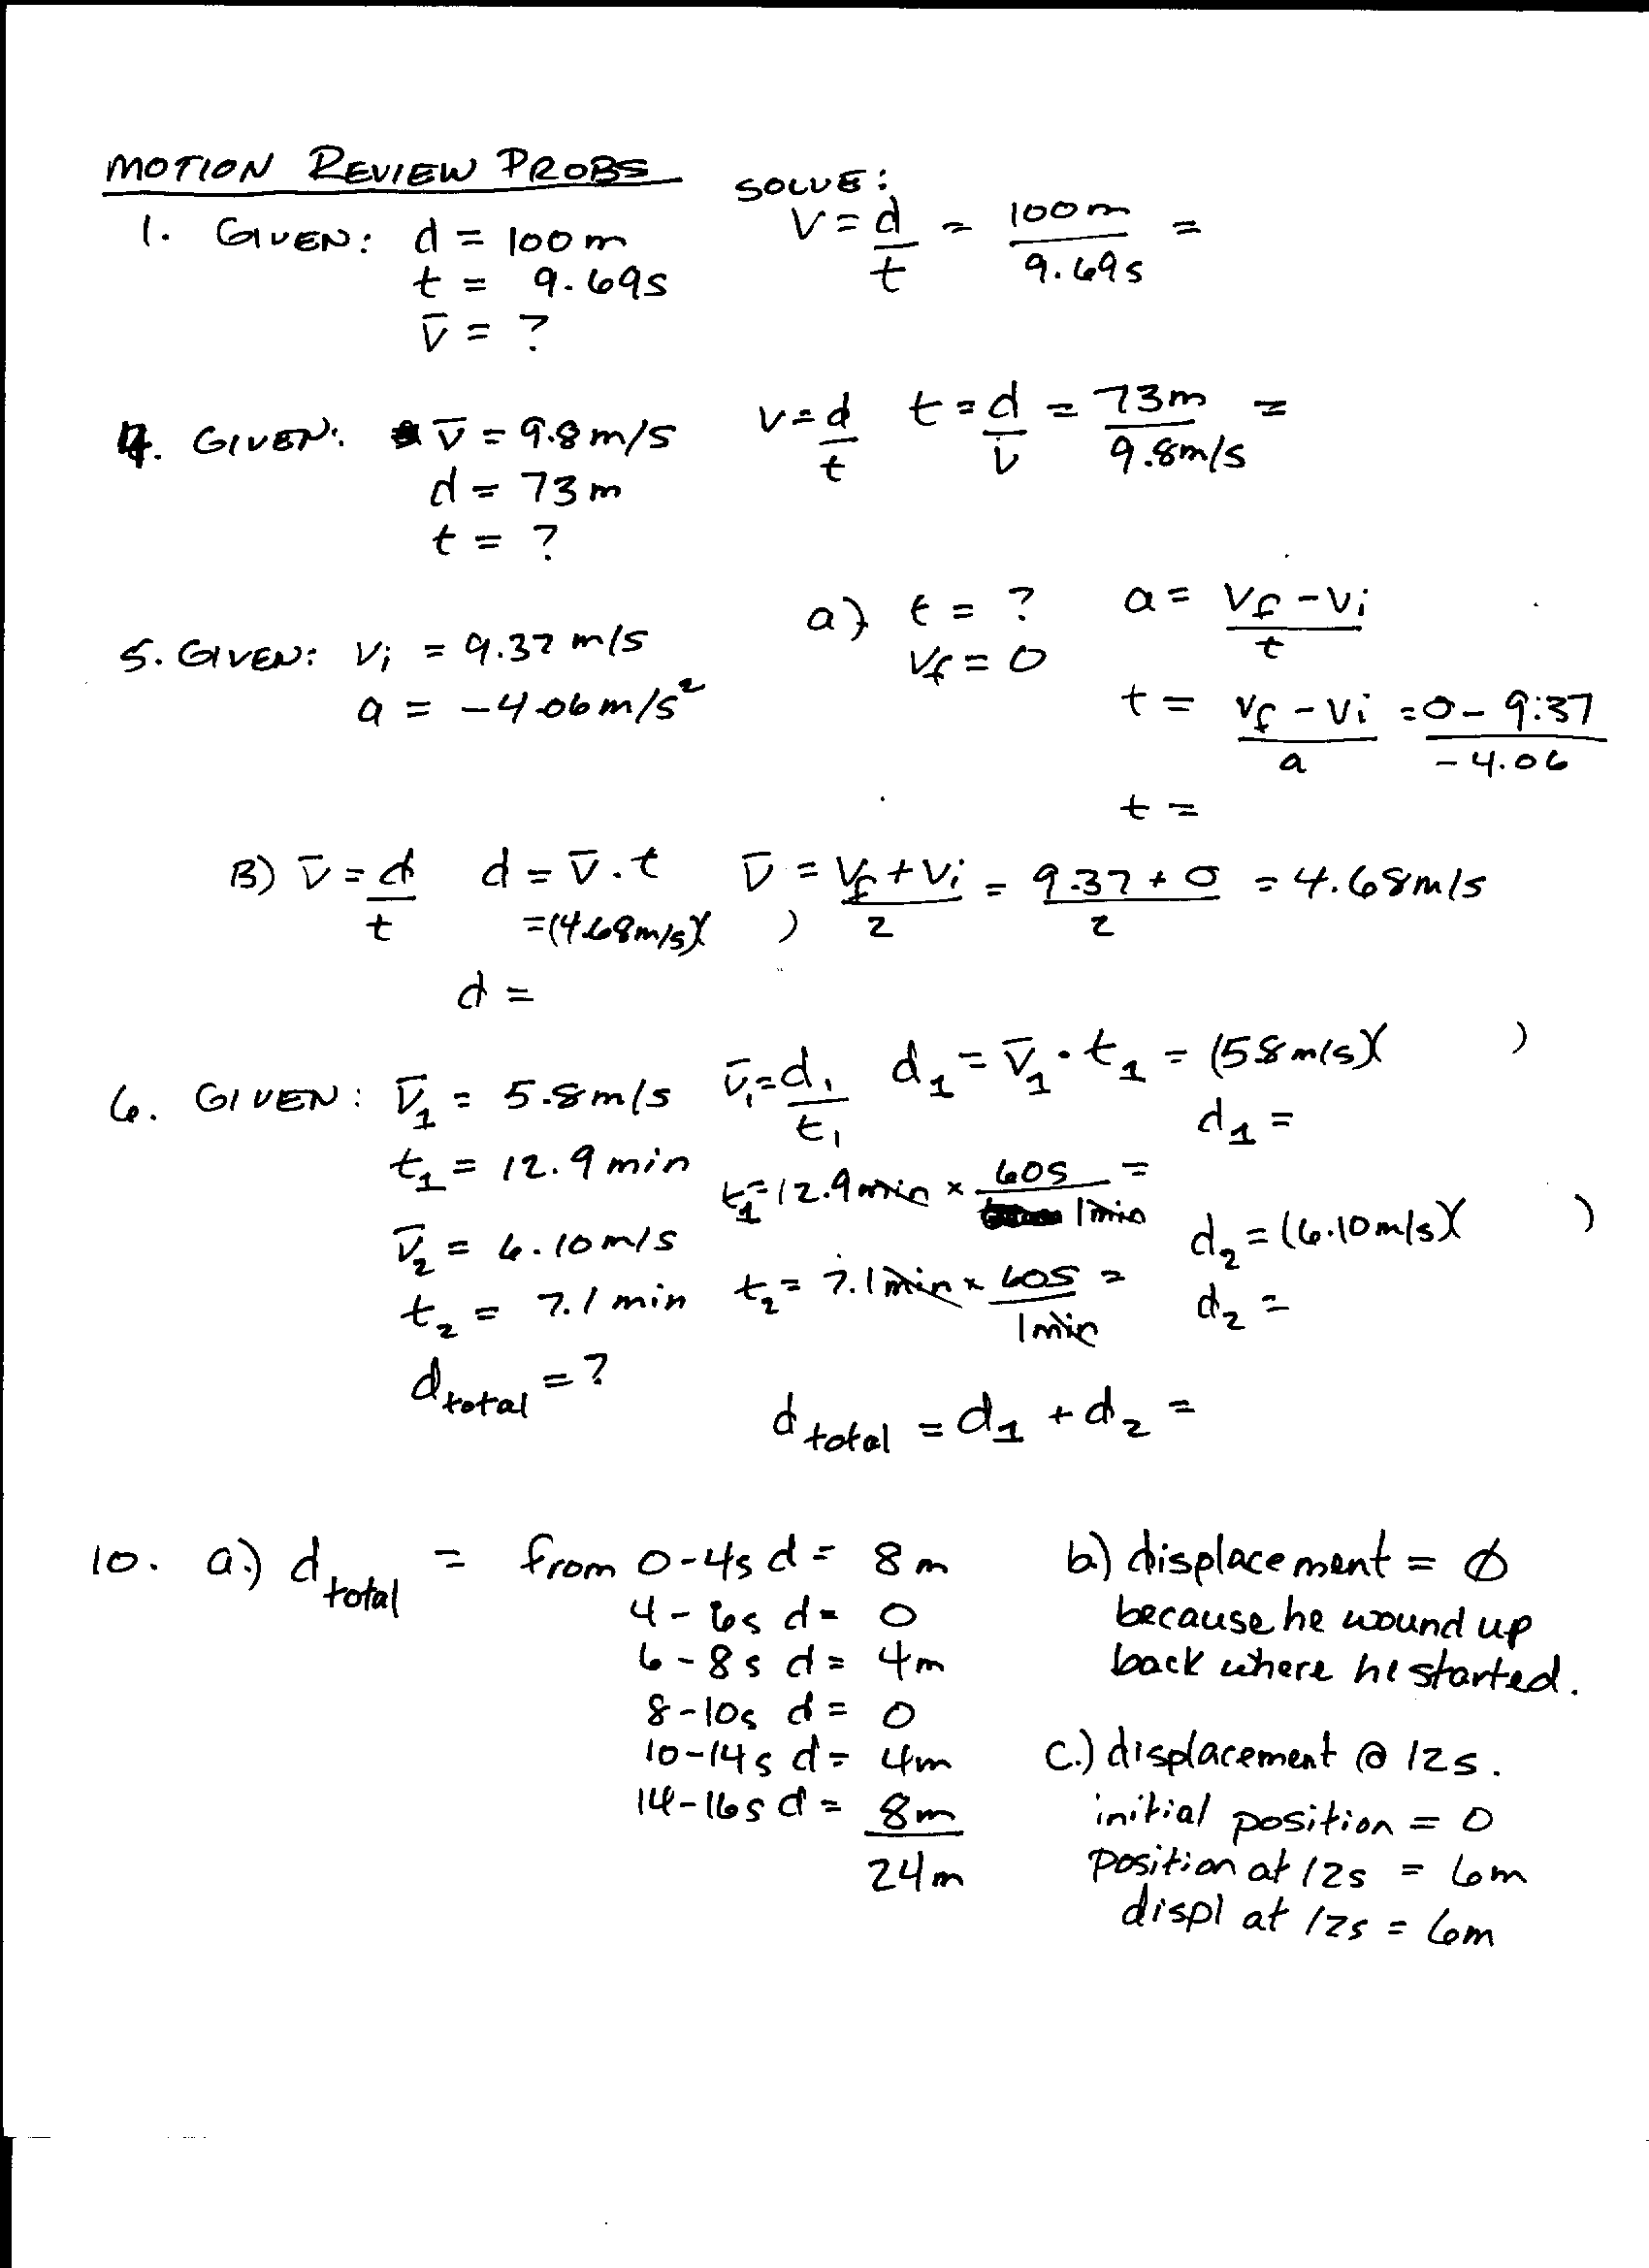 MOTION REVIEW PROBS
SOLVE:
1. GIVEN: d = 100m
t = 9.69s
v̄ = ?
V = d/t = 100m/9.69s =
4. GIVEN: v̄ = 9.8m/s
d = 73m
t = ?
v = d/t t = d/v̄ = 73m/9.8m/s =
5. GIVEN: Vi = 9.37 m/s
a = -4.06m/s²
a) t = ?
Vf = 0
a = Vf - Vi/t
t = Vf - Vi/a = 0 - 9.37/-4.06
t =
B) v̄ = d/t d = v̄ · t v̄ = Vf + Vi/2 = 9.37 + 0/2 = 4.68m/s
=(4.68m/s)( )
d =
6. GIVEN: v̄₁ = 5.8m/s v̄₁ = d₁/t₁ d₁ = v̄₁ · t₁ = (5.8m/s)( )
d₁ =
t₁ = 12.9min t₁ = 12.9min x 60s/1min =
v̄₂ = 6.10m/s d₂ = (6.10m/s)( )
t₂ = 7.1min t₂ = 7.1min x 60s/1min = d₂ =
d total = ?
d total = d₁ + d₂ =
10. a.) d total = from 0-4s d = 8m
4-6s d = 0
6-8s d = 4m
8-10s d = 0
10-14s d = 4m
14-16s d = 8m
24m
b.) displacement = 0̸
because he wound up
back where he started.
c.) displacement @ 12s.
initial position = 0
position at 12s = 6m
displ at 12s = 6m